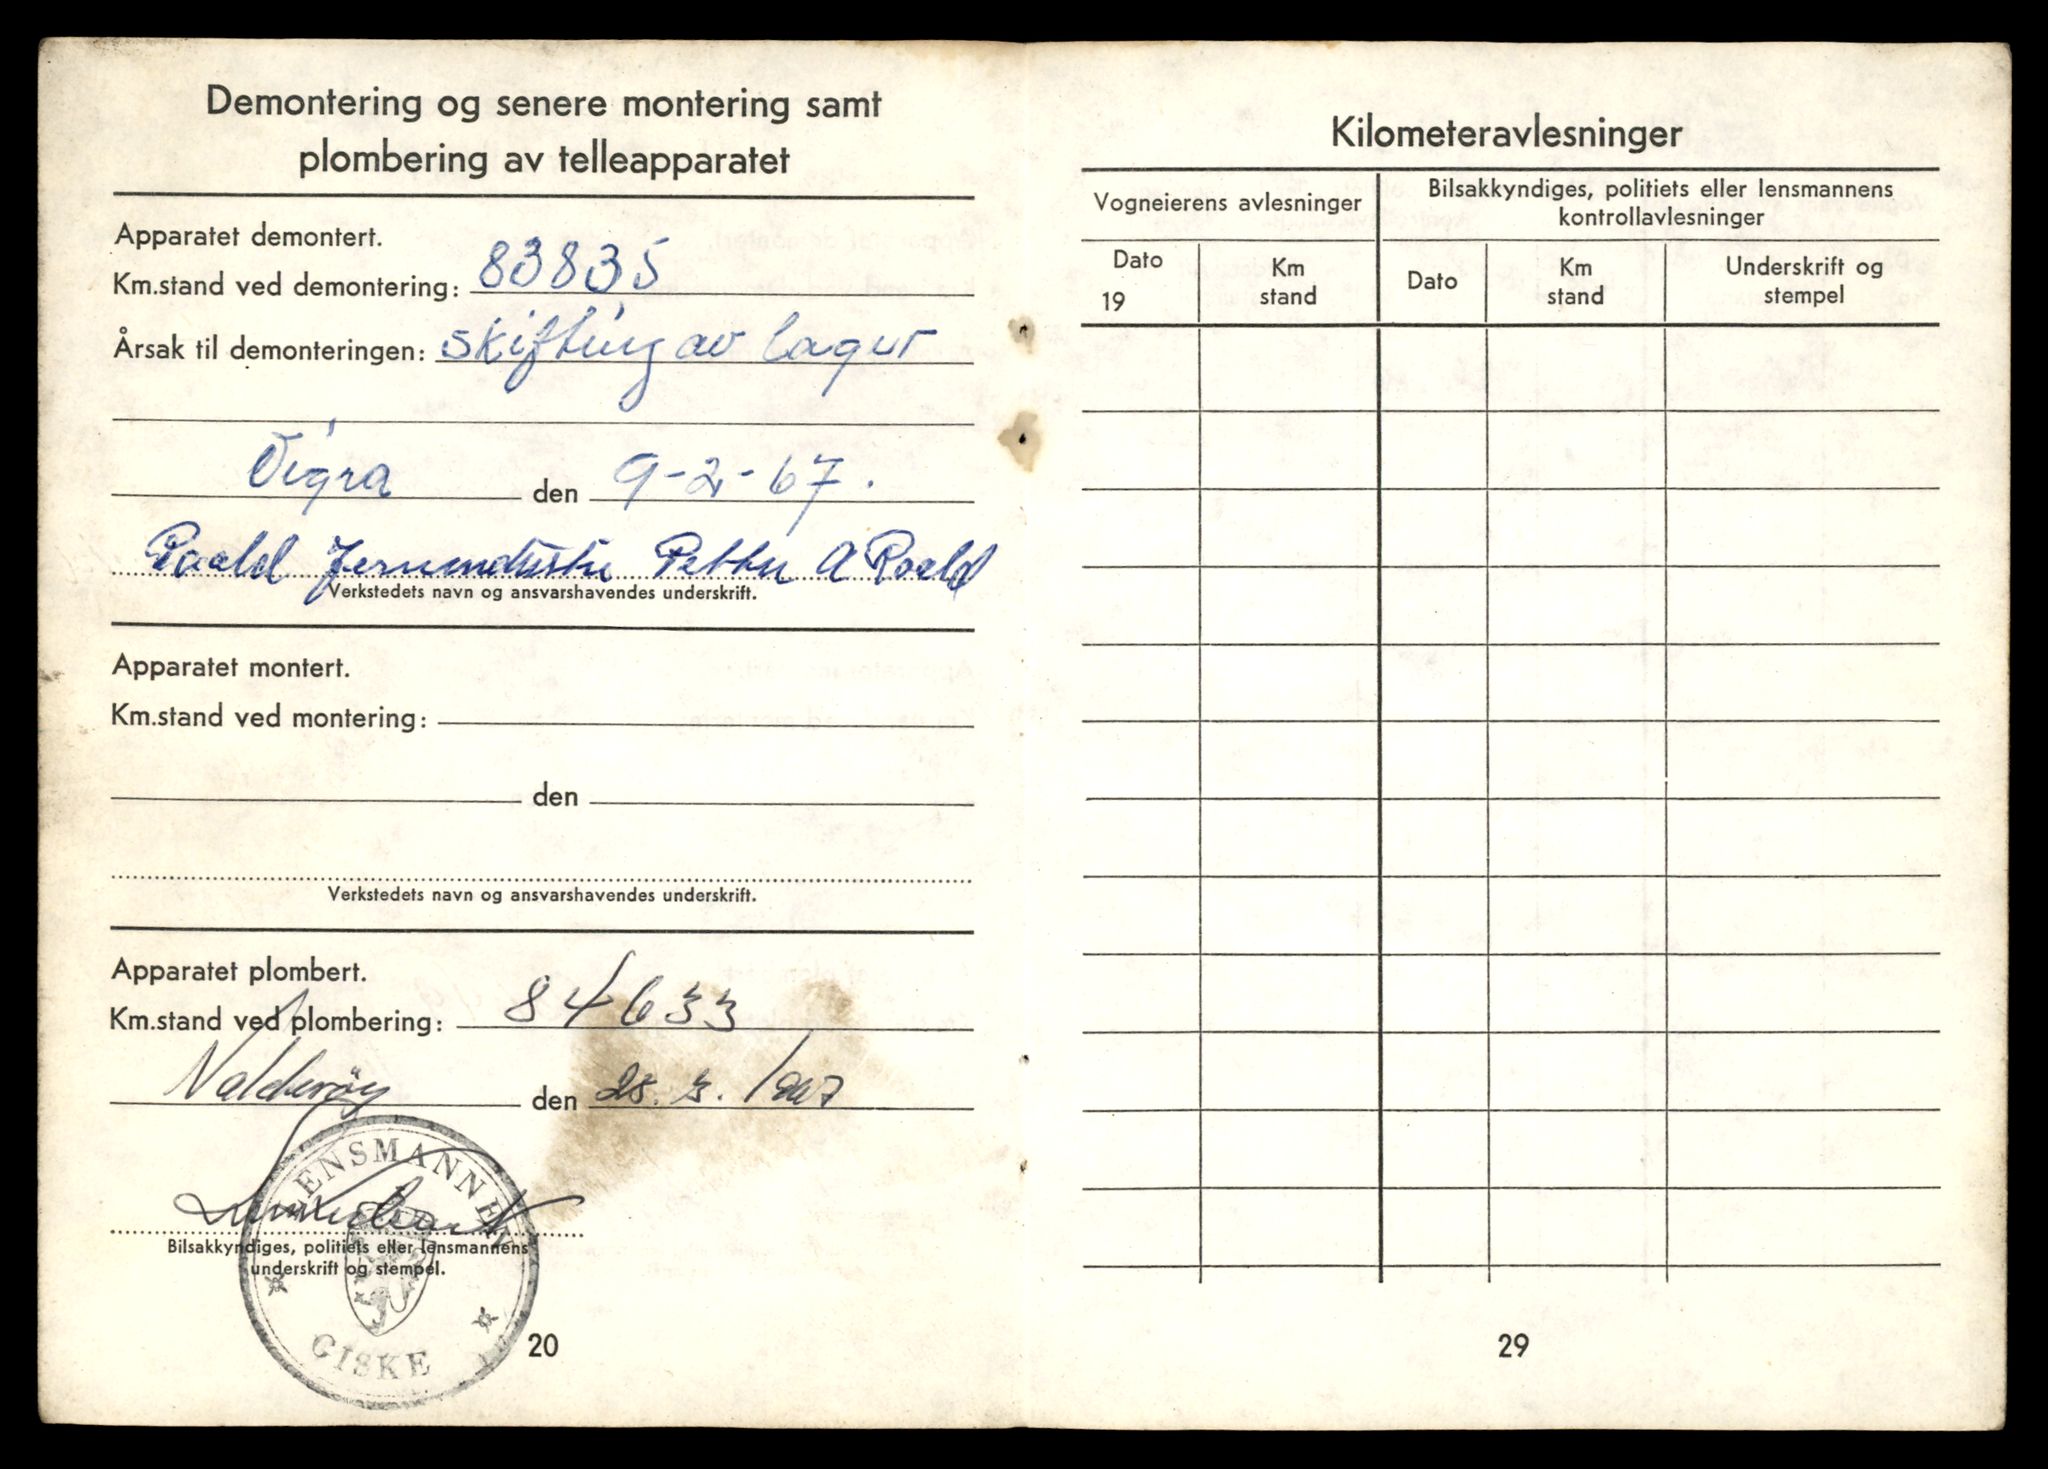 Demontering og senere montering samt
plombering av telleapparatet
Apparatet demontert.
Km.stand ved demontering: 83835
Årsak til demonteringen: skifting av lager
Vigra den 9-2-67.
Roald Jernindustri Petter A Roald
Verkstedets navn og ansvarshavendes underskrift.
Apparatet montert.
Km.stand ved montering:
den
Verkstedets navn og ansvarshavendes underskrift.
Apparatet plombert.
Km.stand ved plombering: 84633
Valderøy den 28.3.1967
LENSMANNEN
Bilsakkyndiges, politiets eller lensmannens
underskrift og stempel.
GISKE
20
Kilometeravlesninger
Vogneierens avlesninger
Bilsakkyndiges, politiets eller lensmannens
kontrollavlesninger
Dato
19
Km
stand
Dato
Km
stand
Underskrift og
stempel
29